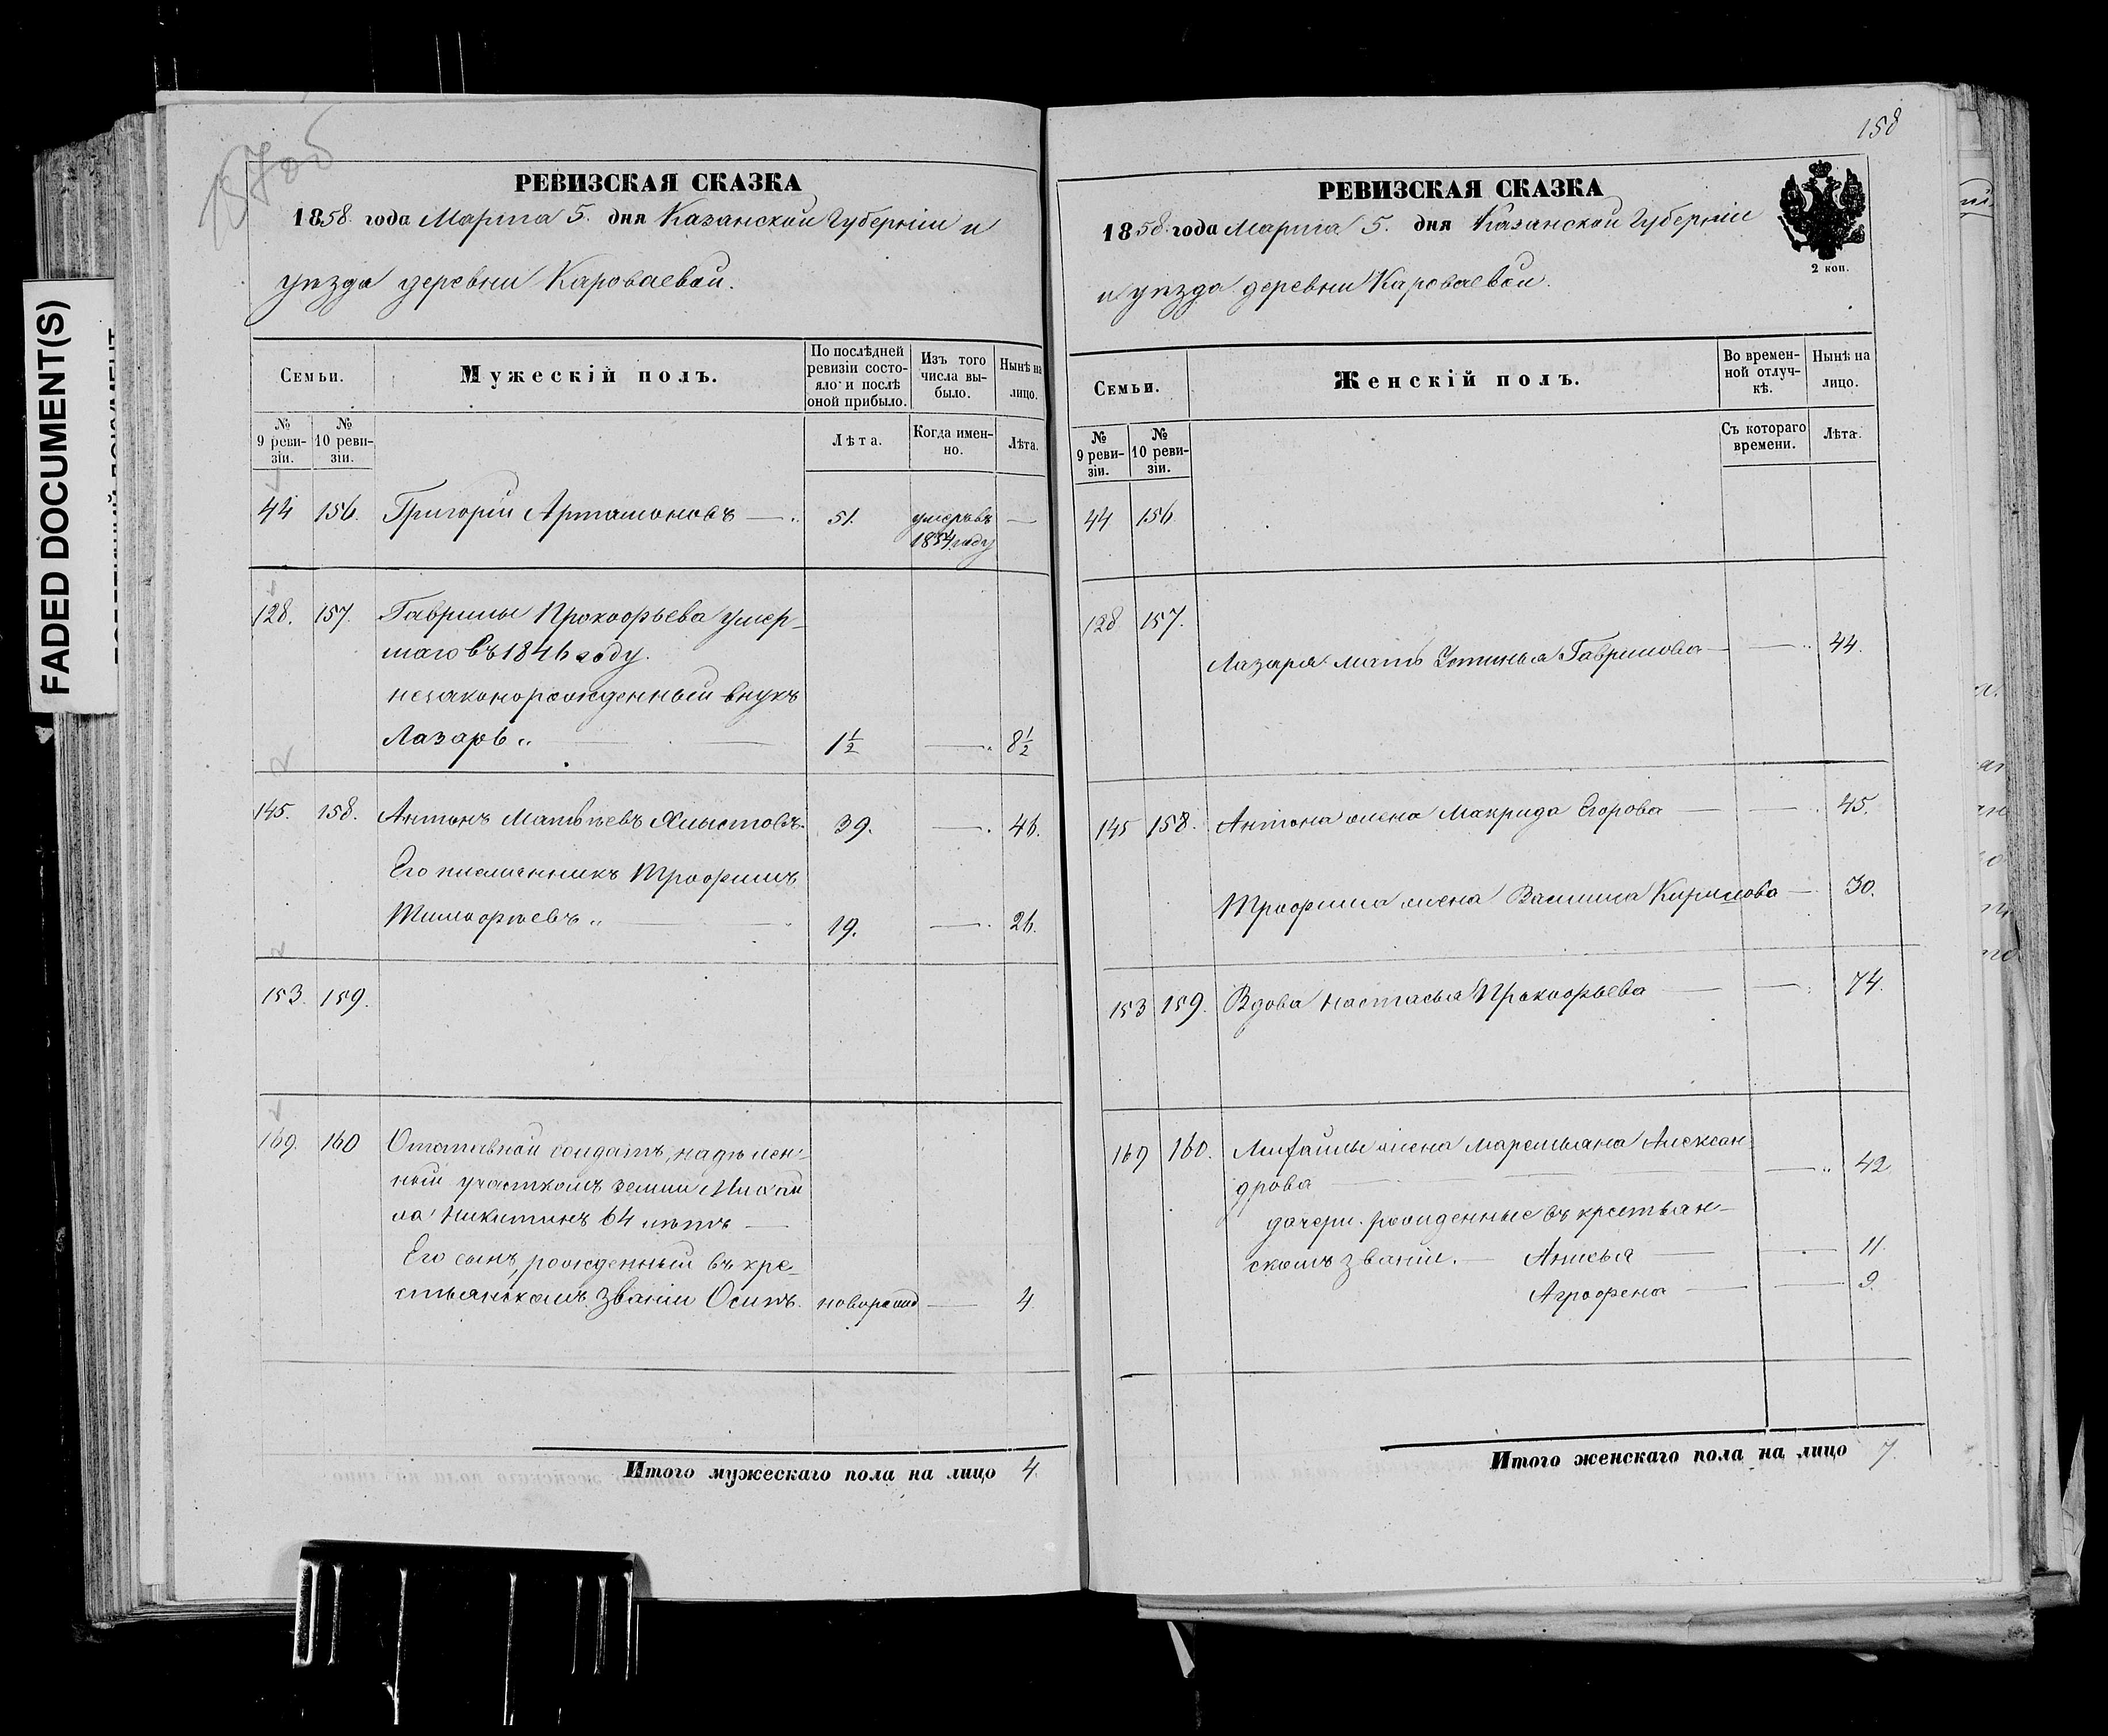 FADED DOCUMENT(S)
158
РЕВИЗСКАЯ СКАЗКА
1858. года Марта 5. дня Казанской Губерніи и
уѣзда деревни Кароваевой.
Семьи.
Мужескій полъ.
По послѣдней ревизіи состояло и послѣ оной прибыло.
Изъ того числа выбыло.
Нынѣ на лицо.
№ 9 ревизіи.
№ 10 ревизіи.
Лѣта.
Когда именно.
Лѣта.
44 156. Григорій Артамоновъ — 51. умеръ въ —
1854 году
128. 157. Гаврилы Прокофьева умер-
шаго въ 1846 году.
незаконорожденный внукъ
Лазарь „ — — 1½ — 8½
145. 158. Антонъ Матвѣевъ Хлыстовъ. 39. — 46.
Его племянникъ Трофимъ
Тимофѣевъ „ — — 19. — 26.
153. 159.
169. 160 Отставной солдатъ, надѣлен-
ный участкомъ земли Михай
ла Никитинъ 64 лѣтъ —
Его сынъ, рожденный въ кре-
стьянскомъ званіи Осипъ. новорожд — 4.
Итого мужескаго пола на лицо 4.
РЕВИЗСКАЯ СКАЗКА
1858. года Марта 5. дня Казанской Губерніи
и уѣзда деревни Кароваевой.
2 коп.
Семьи.
Женскій полъ.
Во временной отлучкѣ.
Нынѣ на лицо.
№ 9 ревизіи.
№ 10 ревизіи.
Съ котораго времени.
Лѣта.
44 156.
128 157.
Лазаря мать Устинья Гаврилова — — 44.
145 158. Антона жена Макрида Егорова — — 45.
Трофима жена Василиса Кирилова — 30.
153 159. Вдова Настасья Прокофьева — — 74.
169 160. Михайлы жена Маремьяна Алексан
дрова — — — 42
дочери рожденные въ крестьян-
скомъ званіи. — Анисья — — 11.
Аграфена — — 9.
Итого женскаго пола на лицо 7.